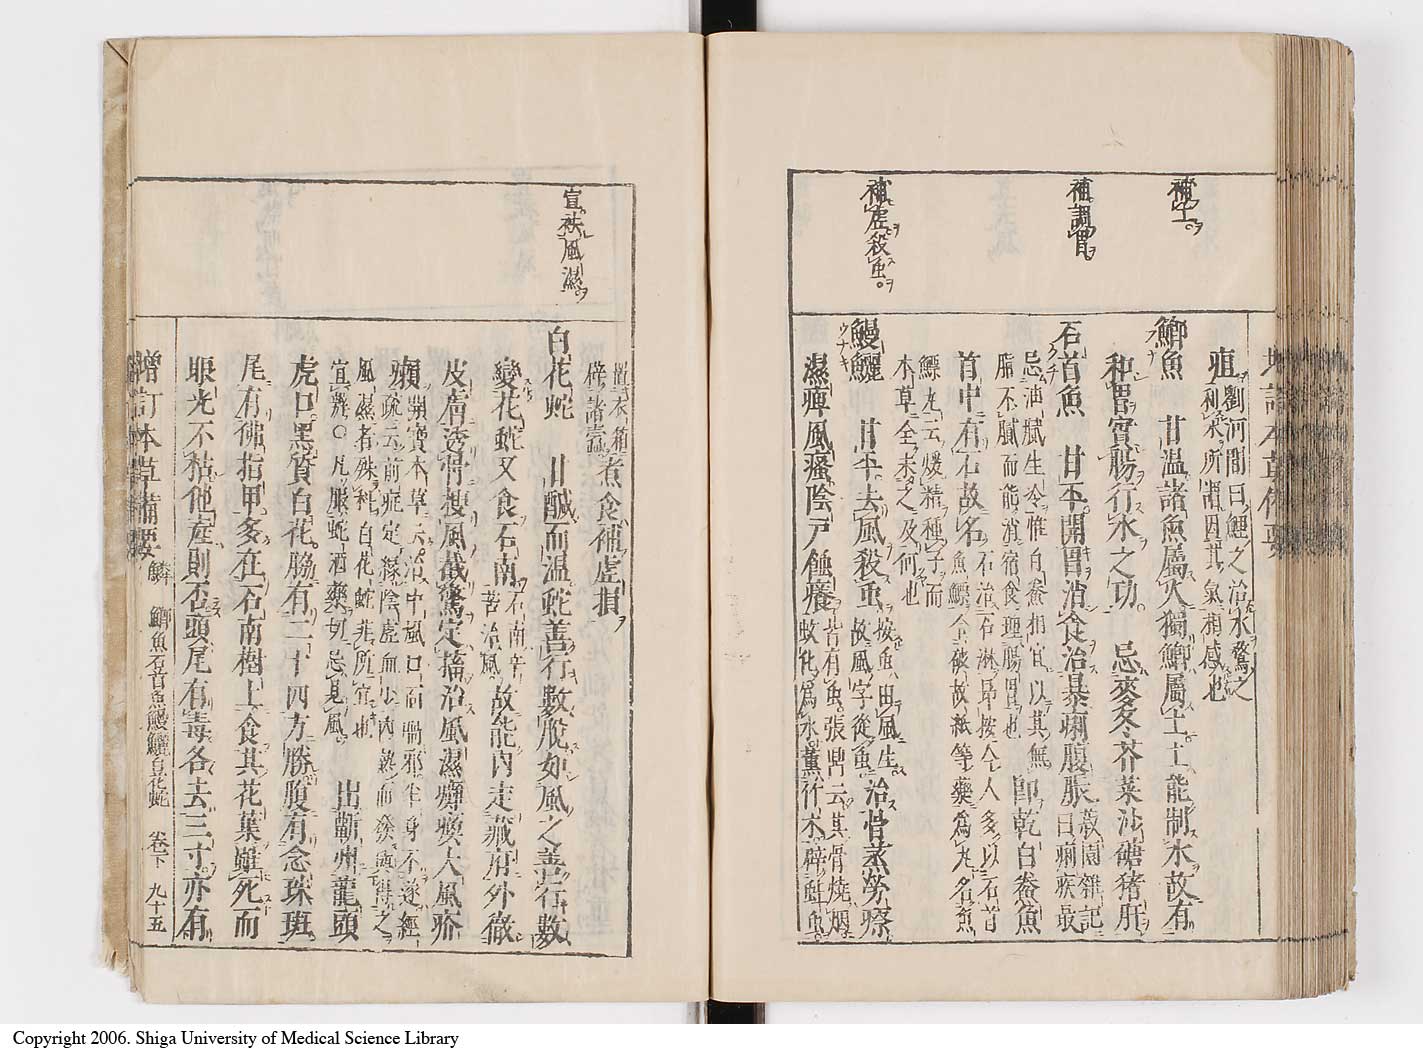 補土
補調胃
補虛殺虫
疽 劉河間曰鯉之治水鶩之
利水所謂因其氣相感也
鯽魚 フナ 甘溫諸魚屬火獨鯽屬土土能制水故有
和胃實腸行水之功 忌麥冬芥菜沙糖猪肝
石首魚 甘平開胃消食治暴痢腹脹 菽園雜記曰痢疾最
忌油膩生冷惟白鯗相宜以其無
脂不膩而能消宿食理腸胃也 卽乾白鯗魚
首中有石故名 石治石淋
鰻鱺 ウナキ 甘平去風殺虫 按魚由風生故風字從虫 治骨蒸勞瘵
濕痺風瘙陰戶蝕癢 皆有虫張鼎云其骨燒烟蚊化爲水薰竹木辟蛀虫
宣袪風濕
置衣箱辟諸蠹 煮食補虛損
白花蛇 甘鹹而溫蛇善行數脫如風之善行數
變花蛇又食石南 石南辛苦治風 故能內走藏府外徹
皮膚透骨搜風截驚定搐治風濕癱瘓大風疥
癩 治中風口面喎邪半身不遂經
疏云前症定緣陰虛血少內熱而發與得之
風濕者殊科白花蛇非所宜也
宜辨○凡服蛇酒藥切忌見風 出蘄州龍頭
虎口黑質白花脇有二十四方勝腹有念珠班
尾有佛指甲多在石南樹上食其花葉雖死而
眼光不枯他產則否頭尾有毒各去三寸亦有
增訂本草備要 鱗 鯽魚石首魚鰻鱺白花蛇 卷下 九十五